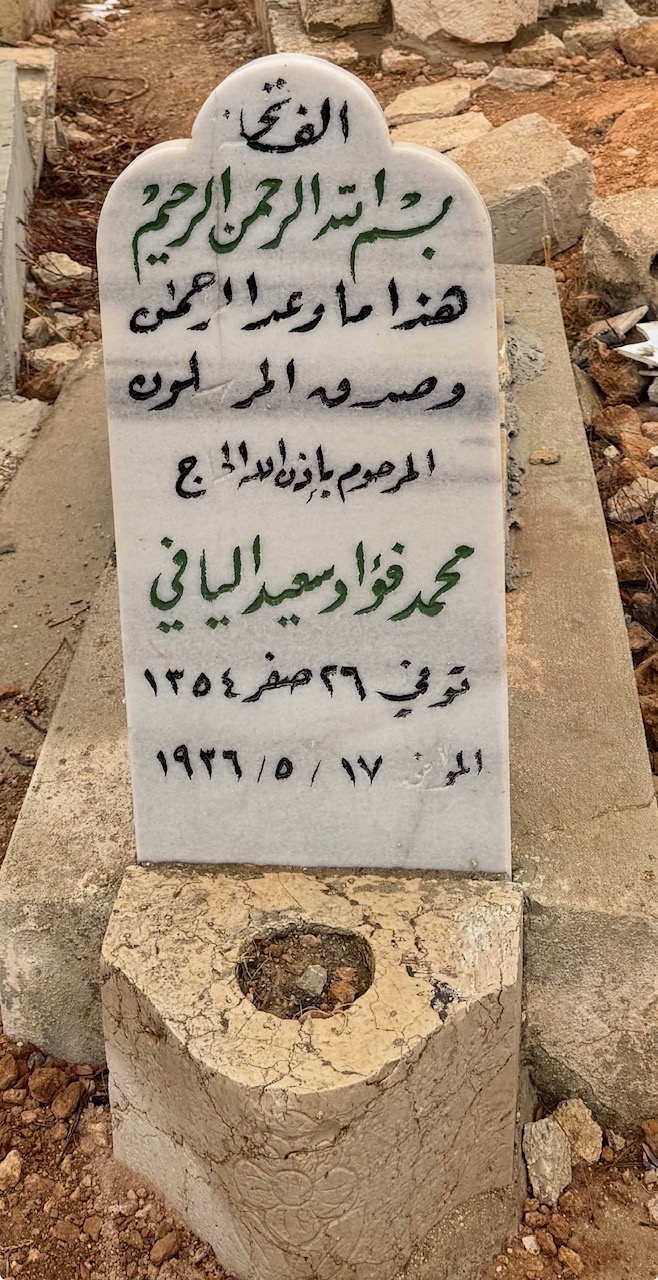 الفاتحة
بسم الله الرحمن الرحيم
هذا ما وعد الرحمن
وصدق المرسلون
المرحوم بإذن الله الحاج
محمد فؤاد سعيد اليافي
توفي ٢٦ صفر ١٣٥٤
الموافق ١٧ / ٥ / ١٩٣٦